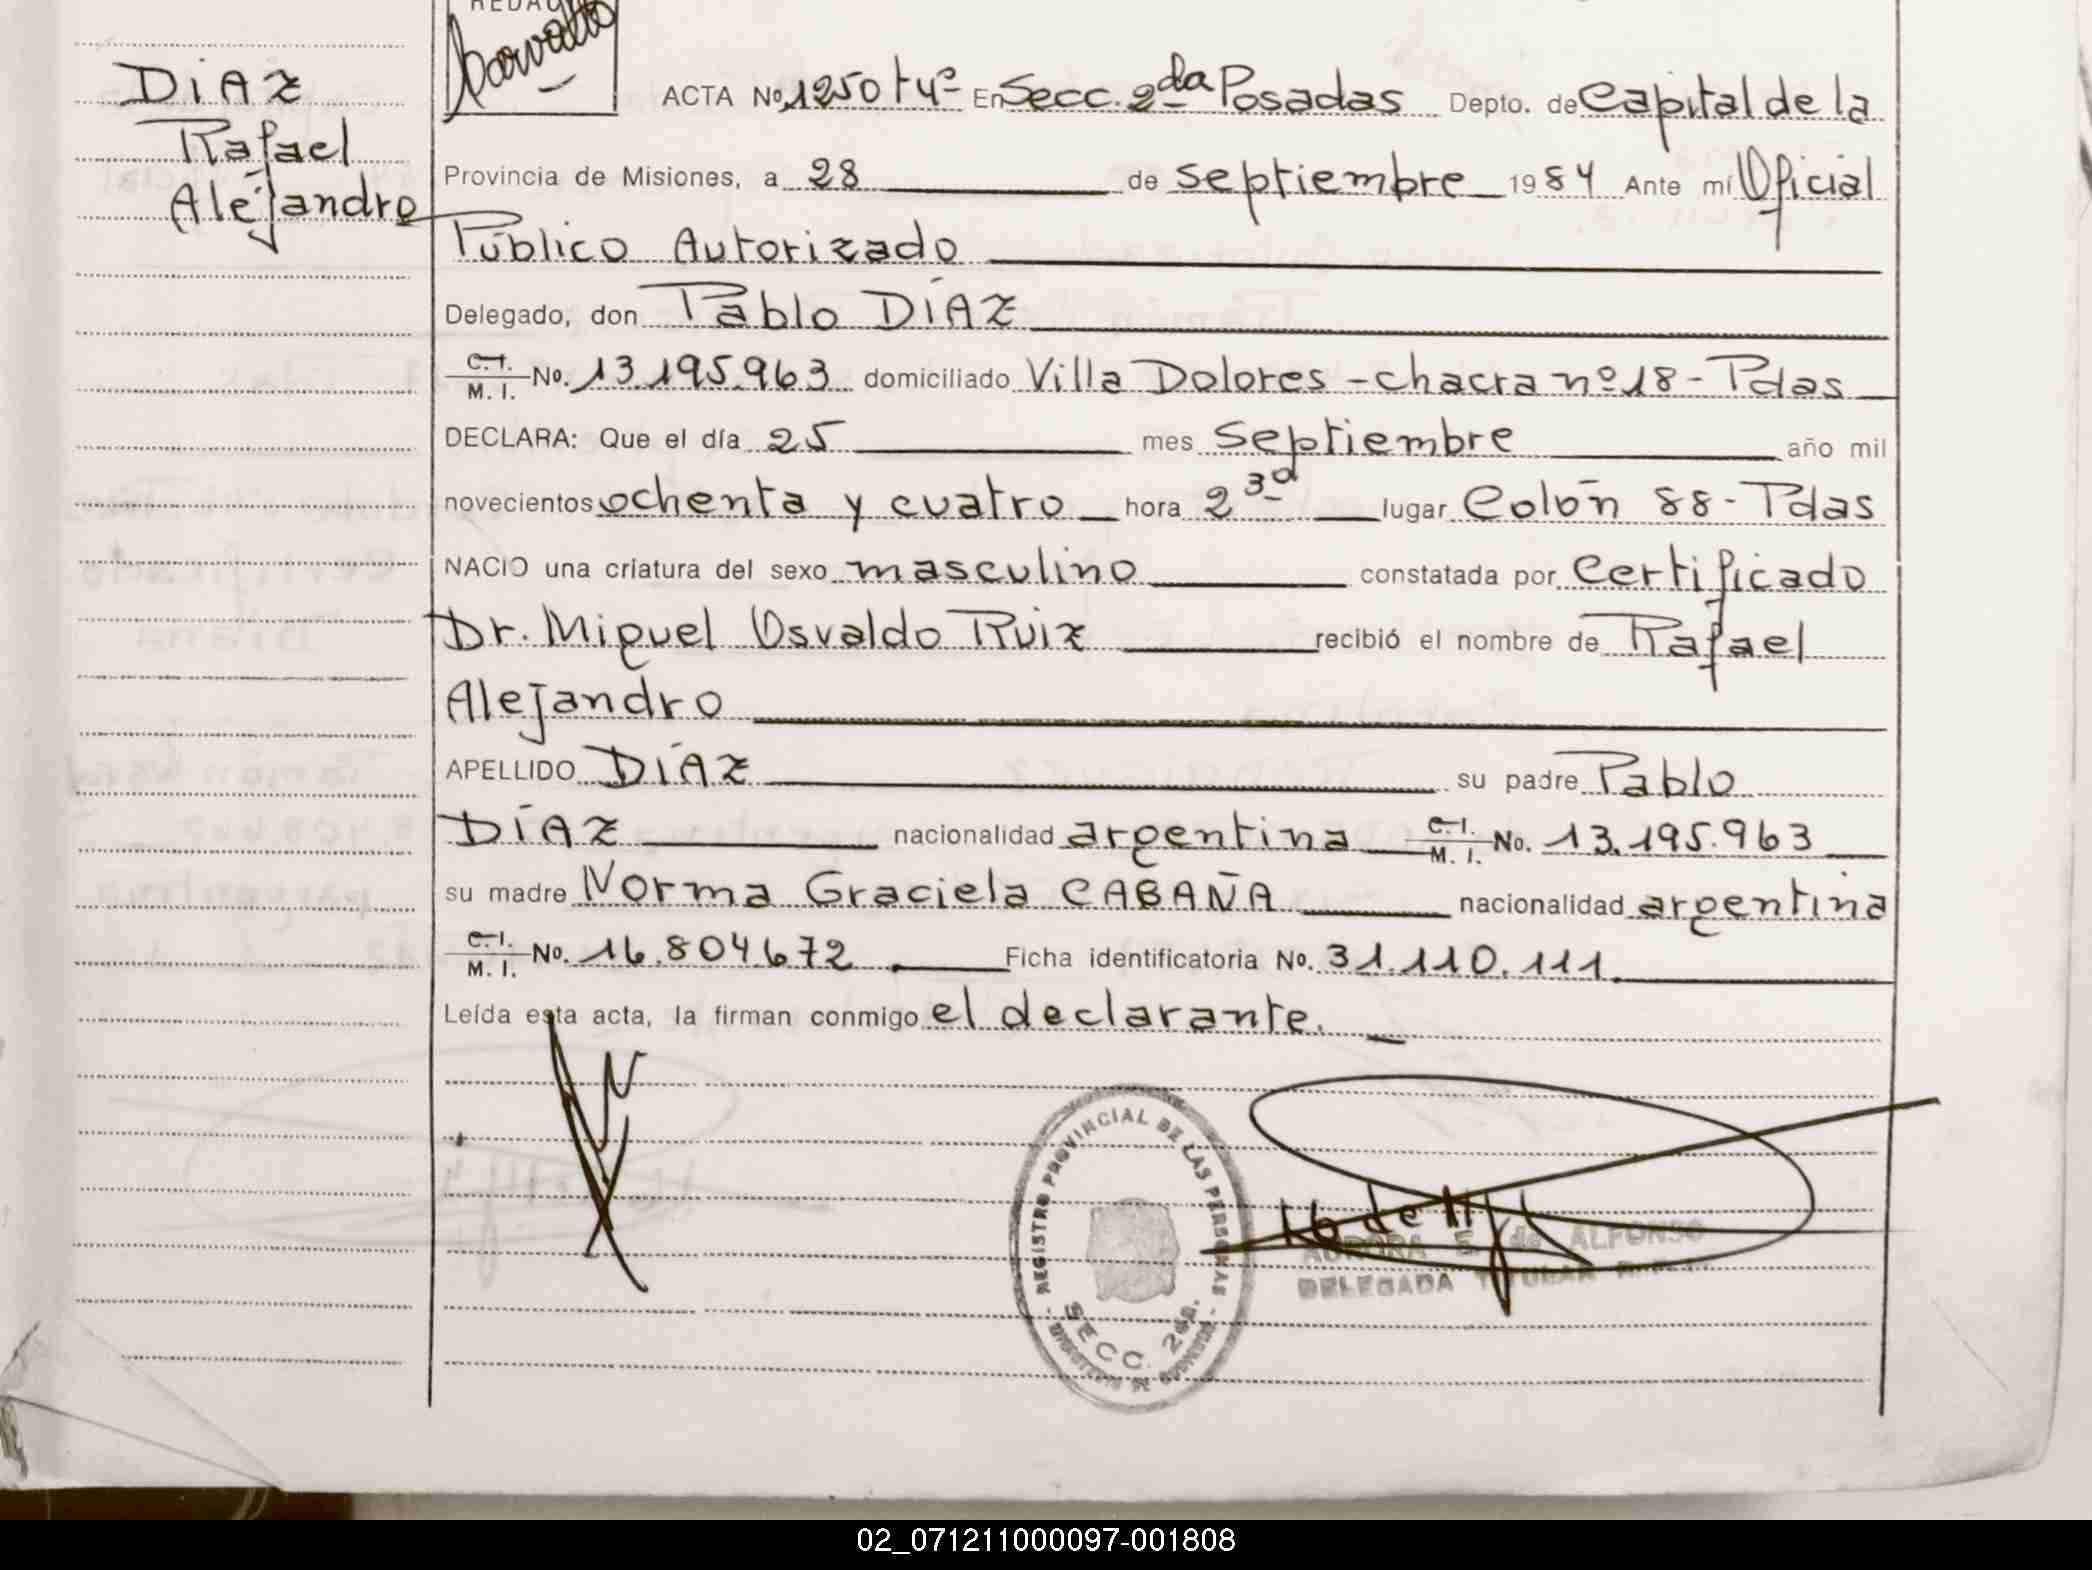 REDAC
Carvallo
DÍAZ
Rafael
Alejandro
ACTA No. 1250 t 4º En Secc. 2da Posadas Depto. de Capital de la
Provincia de Misiones, a 28 de septiembre 1984 Ante mí Oficial
Público Autorizado
Delegado, don Pablo DÍAZ
C.I.
M. I. No. 13.195.963 domiciliado Villa Dolores - chacra nº 18 - Pdas
DECLARA: Que el día 25 mes septiembre año mil
novecientos ochenta y cuatro hora 2 30 lugar Colón 88 - Pdas
NACIO una criatura del sexo masculino constatada por Certificado
Dr. Miguel Osvaldo Ruiz recibió el nombre de Rafael
Alejandro
APELLIDO DÍAZ su padre Pablo
DÍAZ nacionalidad argentina C.I. M. I. No. 13.195.963
su madre Norma Graciela CABAÑA nacionalidad argentina
C.I.
M. I. No. 16.804.672 Ficha identificatoria No. 31.110.111
Leída esta acta, la firman conmigo el declarante.
REGISTRO PROVINCIAL DE LAS PERSONAS
SECC. 2da.
AURORA S. de ALFONSO
DELEGADA TITULAR
02_071211000097-001808